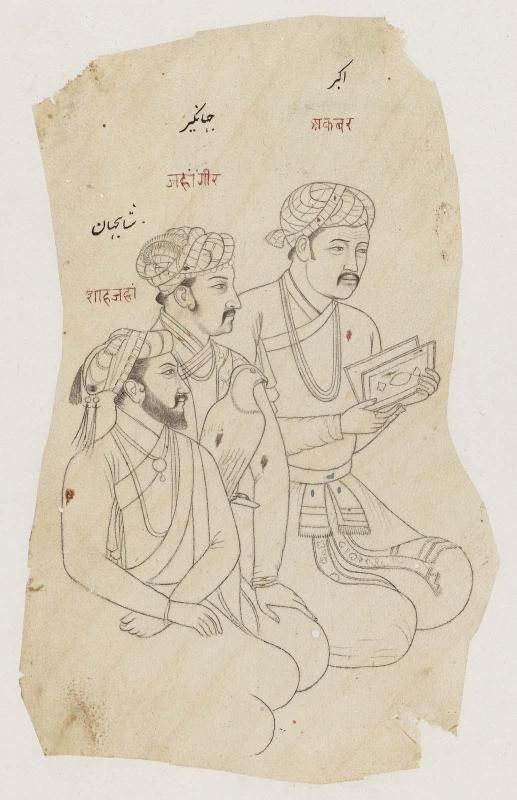 اکبر
अकबर
جہانگیر
जहांगीर
شاہجہان
शाहजहां